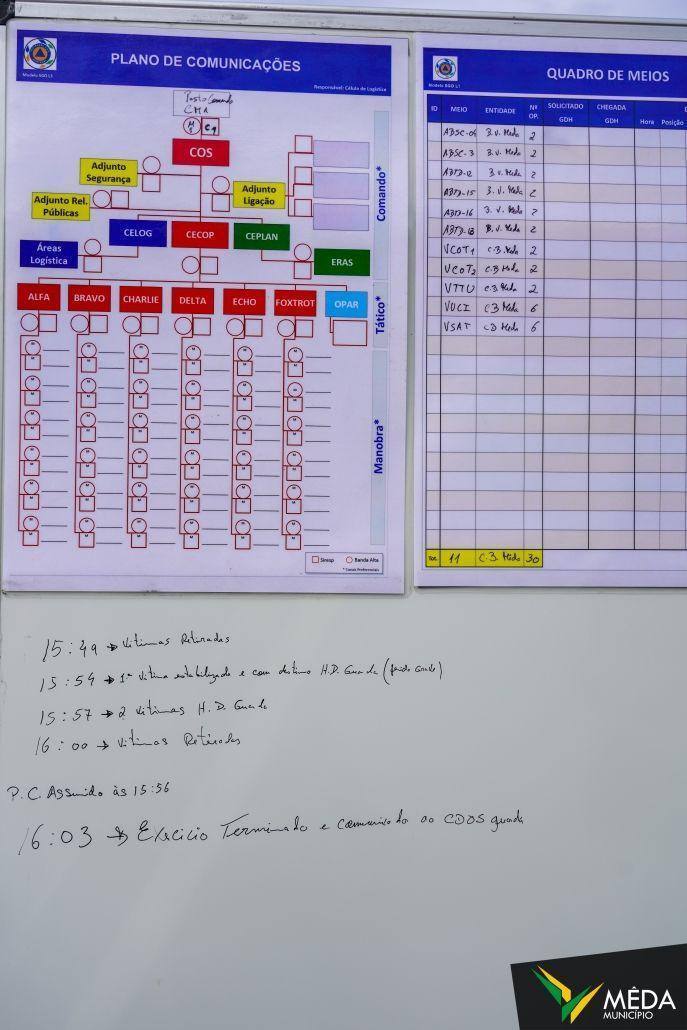 PLANO DE COMUNICAÇÕES
Modelo SGO L1
Responsável: Célula de Logística
Posto Comando
CMA
COS
Adjunto Segurança
Adjunto Rel. Públicas
Adjunto Ligação
Comando*
CELOG
CECOP
CEPLAN
Áreas Logística
ERAS
ALFA
BRAVO
CHARLIE
DELTA
ECHO
FOXTROT
OPAR
Tático*
Manobra*
Siresp
Banda Alta
* Canais Preferenciais
QUADRO DE MEIOS
Modelo SGO L1
ID MEIO ENTIDADE Nº OP. SOLICITADO GDH CHEGADA GDH Hora Posição
B.V. Meda 2
ABSC-3 B.V. Meda 2
ABTD-12 B.V. Meda 2
ABTD-15 B.V. Meda 2
ABTD-16 B.V. Meda 2
ABTD-18 B.V. Meda 2
VCOT1 C.B Meda 2
VCOT2 C.B Meda 2
VTTU C.B Meda 2
VUCI C.B Meda 6
VSAT C.B Meda 6
Tot. 11 C.B. Meda 30
15:49 → Vitimas Retiradas
15:54 → 1ª Vitima estabilizada e com destino H.D. Guarda (ferido Grave)
15:57 → 2 Vitimas H.D. Guarda
16:00 → Vitimas Retiradas
P.C. Assumido às 15:56
16:03 → Exercicio Terminado e comunicado ao CDOS guarda
MÊDA
MUNICÍPIO